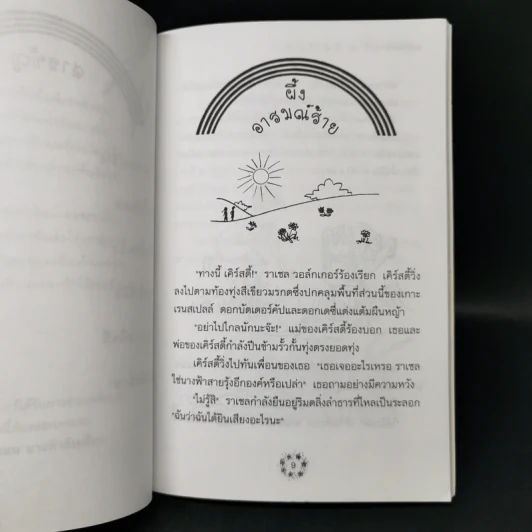 ผึ้ง
อารมณ์ร้าย
"ทางนี้ เคิร์สตี้!" ราเชล วอล์กเกอร์ร้องเรียก เคิร์สตี้วิ่ง
ลงไปตามท้องทุ่งสีเขียวมรกตซึ่งปกคลุมพื้นที่ส่วนนี้ของเกาะ
เรนสเปลล์ ดอกบัตเตอร์คัปและดอกเดซี่แต่งแต้มผืนหญ้า
"อย่าไปไกลนักนะจ๊ะ!" แม่ของเคิร์สตี้ร้องบอก เธอและ
พ่อของเคิร์สตี้กำลังปีนข้ามรั้วกั้นทุ่งตรงยอดทุ่ง
เคิร์สตี้วิ่งไปทันเพื่อนของเธอ "เธอเจออะไรเหรอ ราเชล
ใช่นางฟ้าสายรุ้งอีกองค์หรือเปล่า" เธอถามอย่างมีความหวัง
"ไม่รู้สิ" ราเชลกำลังยืนอยู่ริมตลิ่งลำธารที่ไหลเป็นระลอก
"ฉันว่าฉันได้ยินเสียงอะไรนะ"
9